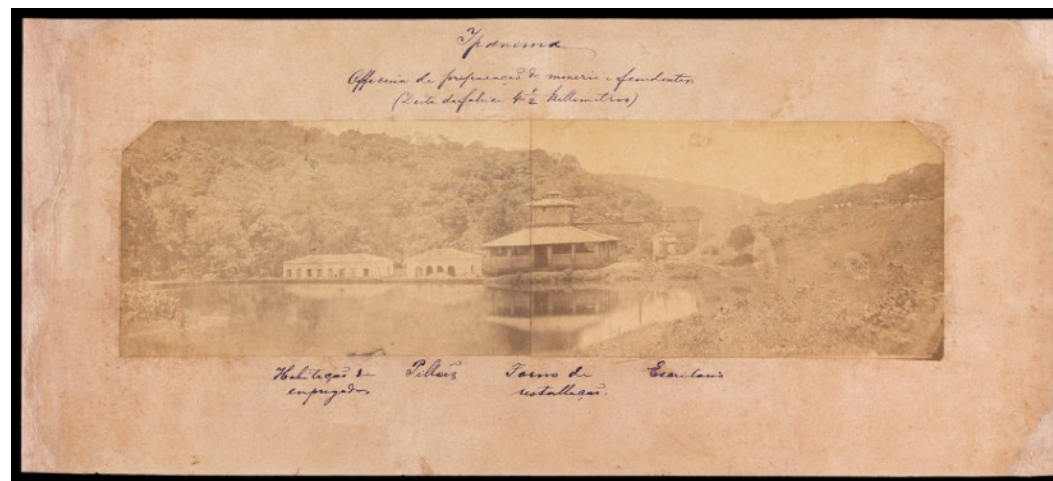 Ypanema
Officina de preparação de minerio e fundentes
(Deita da fabrica 4 1/2 killometros)
Habitação de
empregados
Pillões
Forno de
ustullação.
Escritorio